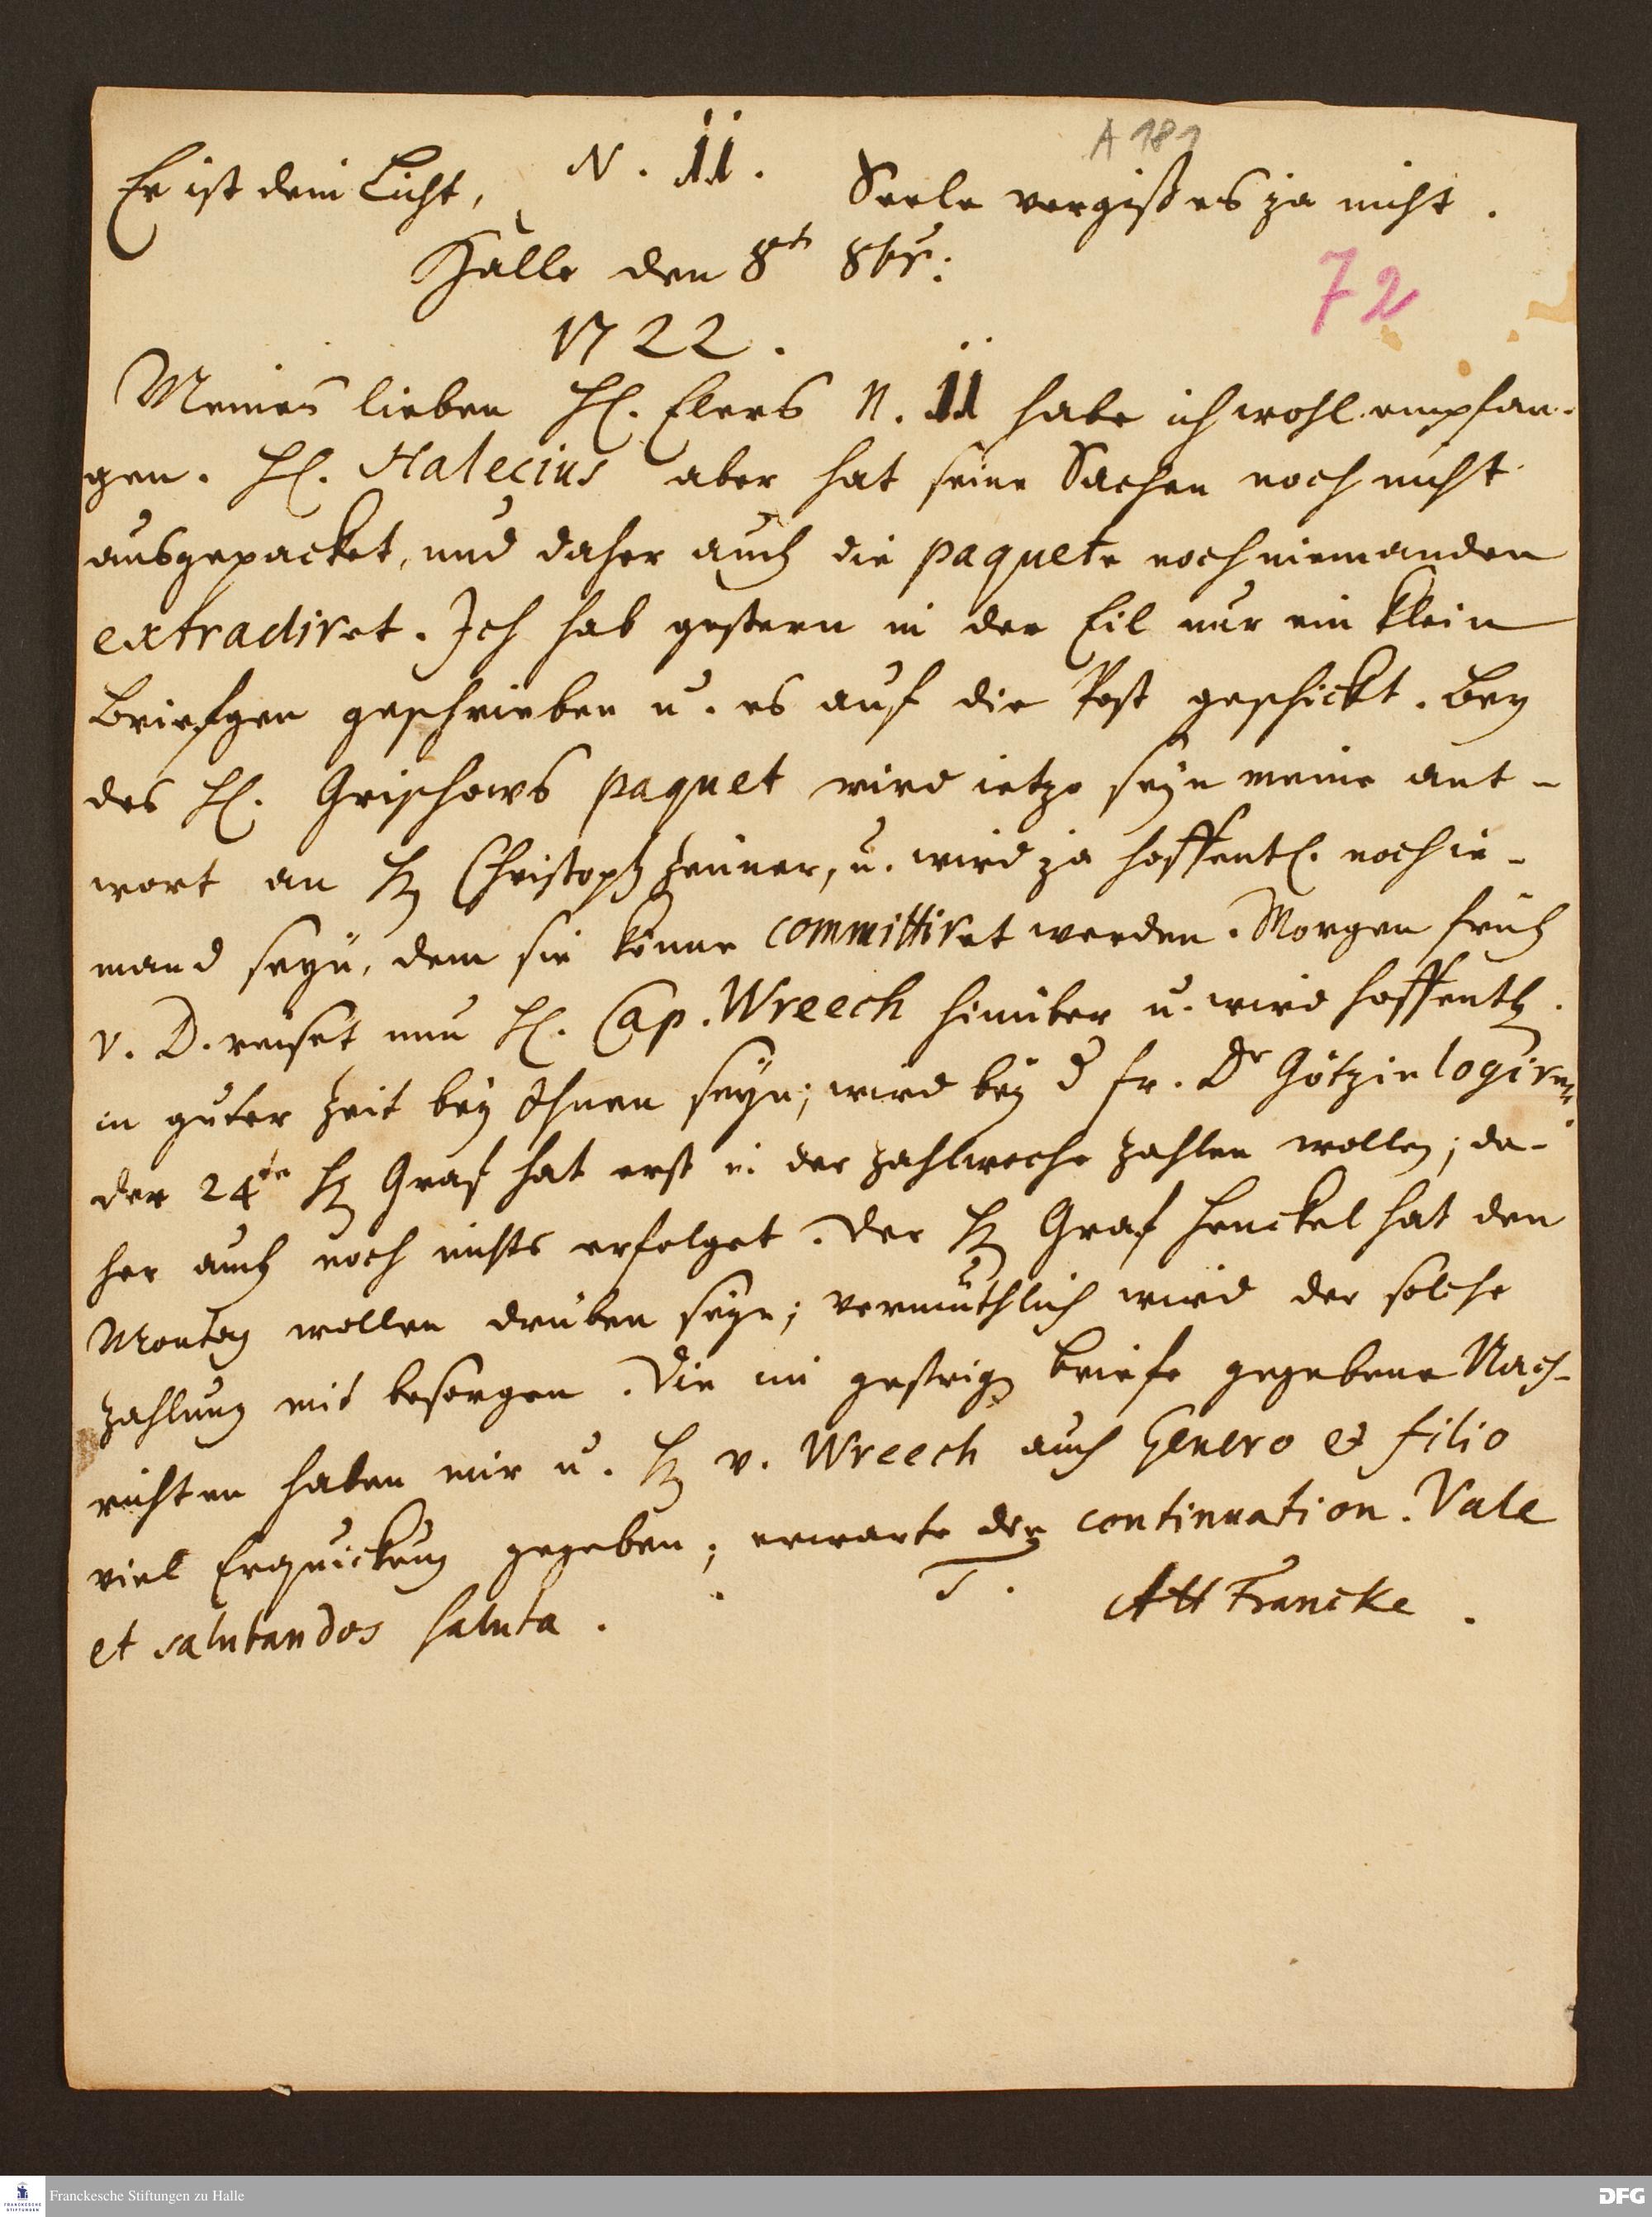 A 181
Er ist dein Licht, N. 11. Seele vergiß es ja nicht.
Halle den 8t 8br:
1722.
72
Meines lieben H. Elers N. 11 habe ich wohl empfan-
gen. H. Halecius aber hat seine Sachen noch nicht
ausgepacket, und daher auch die paquete noch niemanden
extradiret. Ich hab gestern in der Eil nur ein klein
Briefgen geschrieben u. es auf die Post geschickt. Bey
des H. Grischows paquet wird ietzo seyn meine ant-
wort an H Christoph Zeuner, u. wird ja hoffentl. noch ie-
mand seyn, dem sie könne committiret werden. Morgen früh
v. D. reiset nun H. Cap. Wreech hinüber u. wird hoffentl.
in guter Zeit bey Ihnen seyn; wird bey d Fr. Dr Götzin logiren
der 24te H Graf hat erst in der Zahlwoche zahlen wollen; da-
her auch noch nichts erfolget. Der H Graf Henckel hat den
Montag wollen drüben seyn; vermuthlich wird der solche
Zahlung mit besorgen. Die im gestrigen Briefe gegebene Nach-
richten haben mir u. H v. Wreech auch Genero et filio
viel Erquickung gegeben; erwarte den continuation. Vale
et salutandos saluta. T. AHFrancke.
Franckesche Stiftungen zu Halle
FRANCKESCHE STIFTUNGEN
DFG